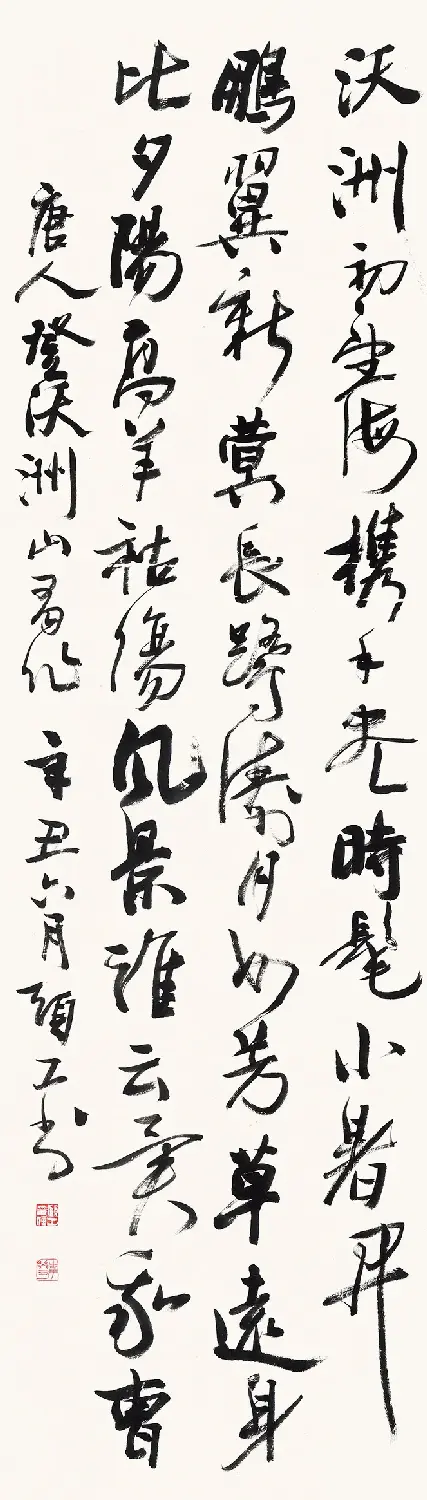 沃洲初望海攜手盡時髦小暑開
鵬翼新蓂長鷺濤月如芳草遠身
比夕陽高羊祜傷風景誰云異我曹
唐人登沃洲山有作 辛丑六月顧工書